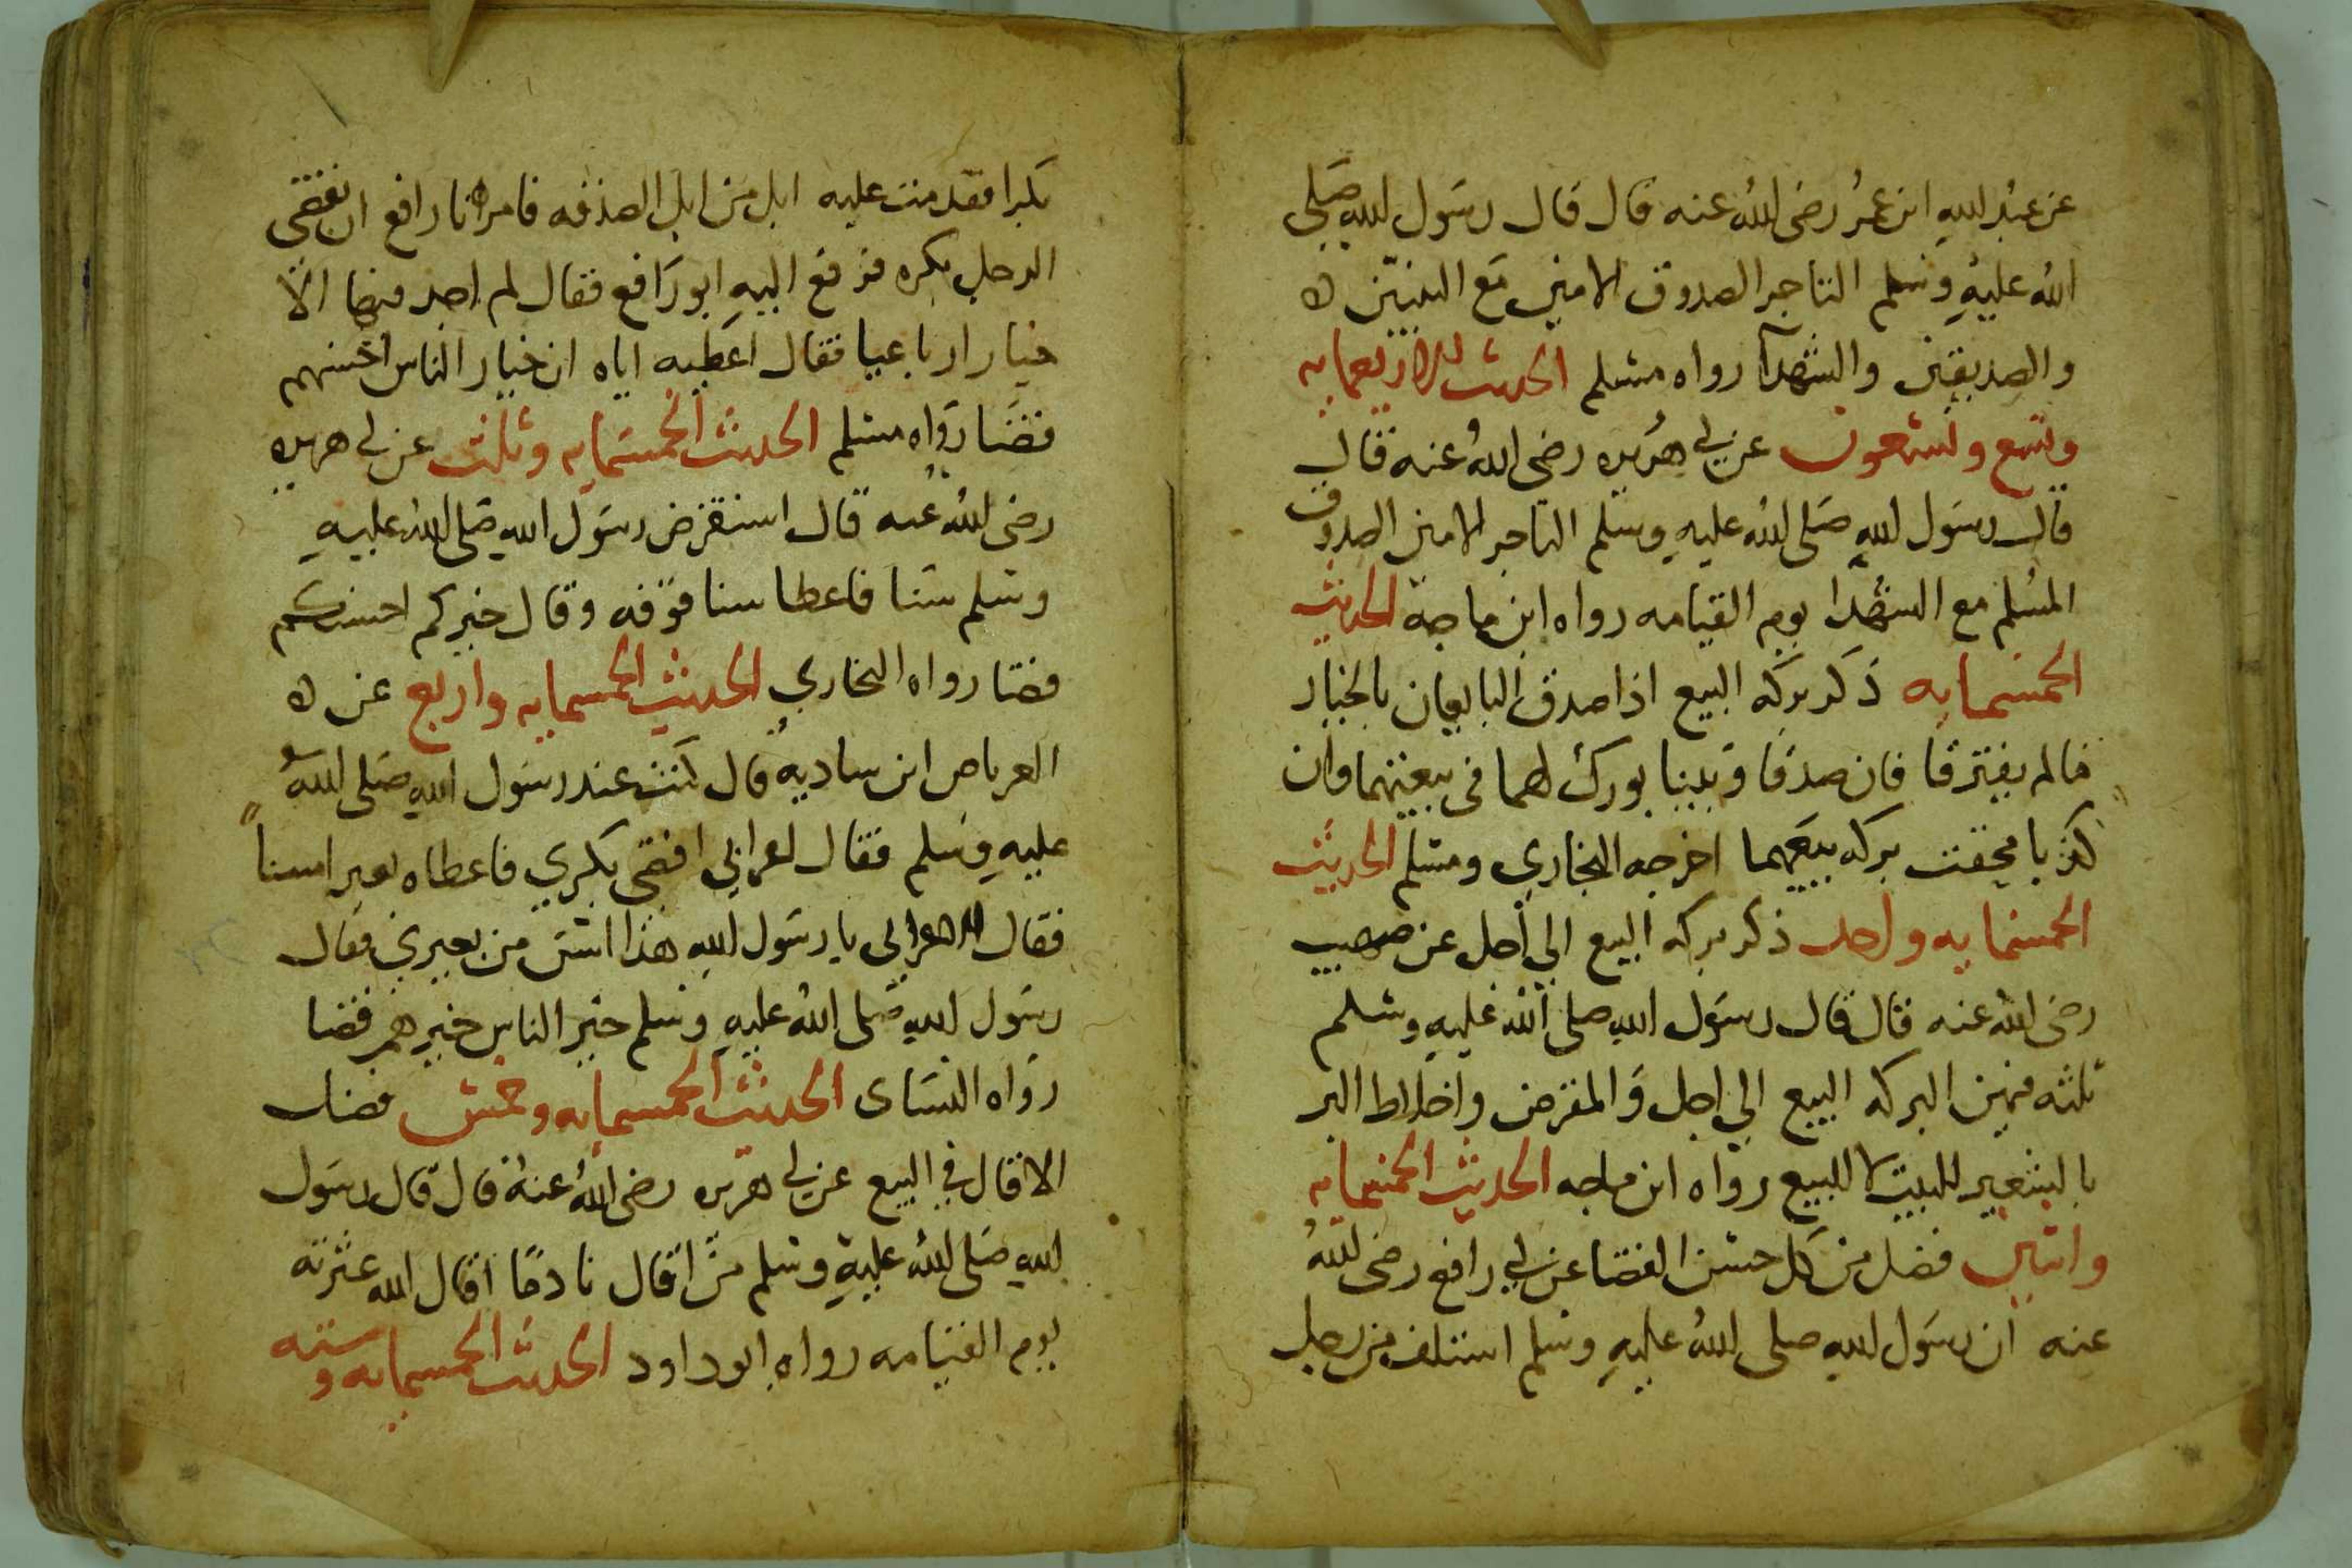 عن عبد الله ابن عمر رضى الله عنه قال قال رسول الله صلى
الله عليه وسلم التاجر الصدوق الامين مع النبيين ه
والصديقين والشهدآ رواه مسلم الحديث الاربعمايه
وتسع وتسعون عن ابي هريره رضى الله عنه قال
قال رسول الله صلى الله عليه وسلم التاجر الامين الصدوق
المسلم مع الشهدا يوم القيامه رواه ابن ماجة الحديث
الخمسمايه ذكر بركه البيع اذا صدق البايعان بالخيار
مالم يفترقا فان صدقا وبينا بورك لهما في بيعتهما وان
كذبا محقت بركه بيعهما اخرجه البخاري ومسلم الحديث
الخمسمايه واحد ذكر بركه البيع الي أجل عن صهيب
رضى الله عنه قال قال رسول الله صلى الله عليه وسلم
ثلثه فيهن البركه البيع الي اجل والمقرض واخلاط البر
بالشعير للبيت لا للبيع رواه ابن ماجه الحديث الخمسمايه
واثنين فضل من كل حسن القضا عن ابي رافع رضى الله
عنه ان رسول الله صلى الله عليه وسلم استلف من رجل
بكرا فقدمت عليه ابل من ابل الصدقه فامر ابا رافع ان يقضى
الرجل بكره فرجع اليه ابو رافع فقال لم اجد فيها الا
خيارا رباعيا فقال اعطيه اياه ان خيار الناس احسنهم
قضا رواه مسلم الحديث الخمسمايه وثلث عن ابي هريره
رضى الله عنه قال استقرض رسول الله صلى الله عليه
وسلم سنا فاعطا سنا فوقه وقال خيركم احسنكم
قضا رواه البخاري الحديث الخمسمايه واربع عن ه
العرباص ابن ساديه قال كنت عند رسول الله صلى الله
عليه وسلم فقال اعرابي اقضى بكري فاعطاه بعيرا سنا
فقال الاعرابي يا رسول الله هذا اسن من بعيري فقال
رسول الله صلى الله عليه وسلم خير الناس خيرهم قضا
رواه النساى الحديث الخمسمايه وخمس فضل
الاقال في البيع عن ابي هريره رضى الله عنه قال قال رسول
الله صلى الله عليه وسلم من اقال نادما اقال الله عثرته
يوم القيامه رواه ابو داود الحديث الخمسمايه وسته